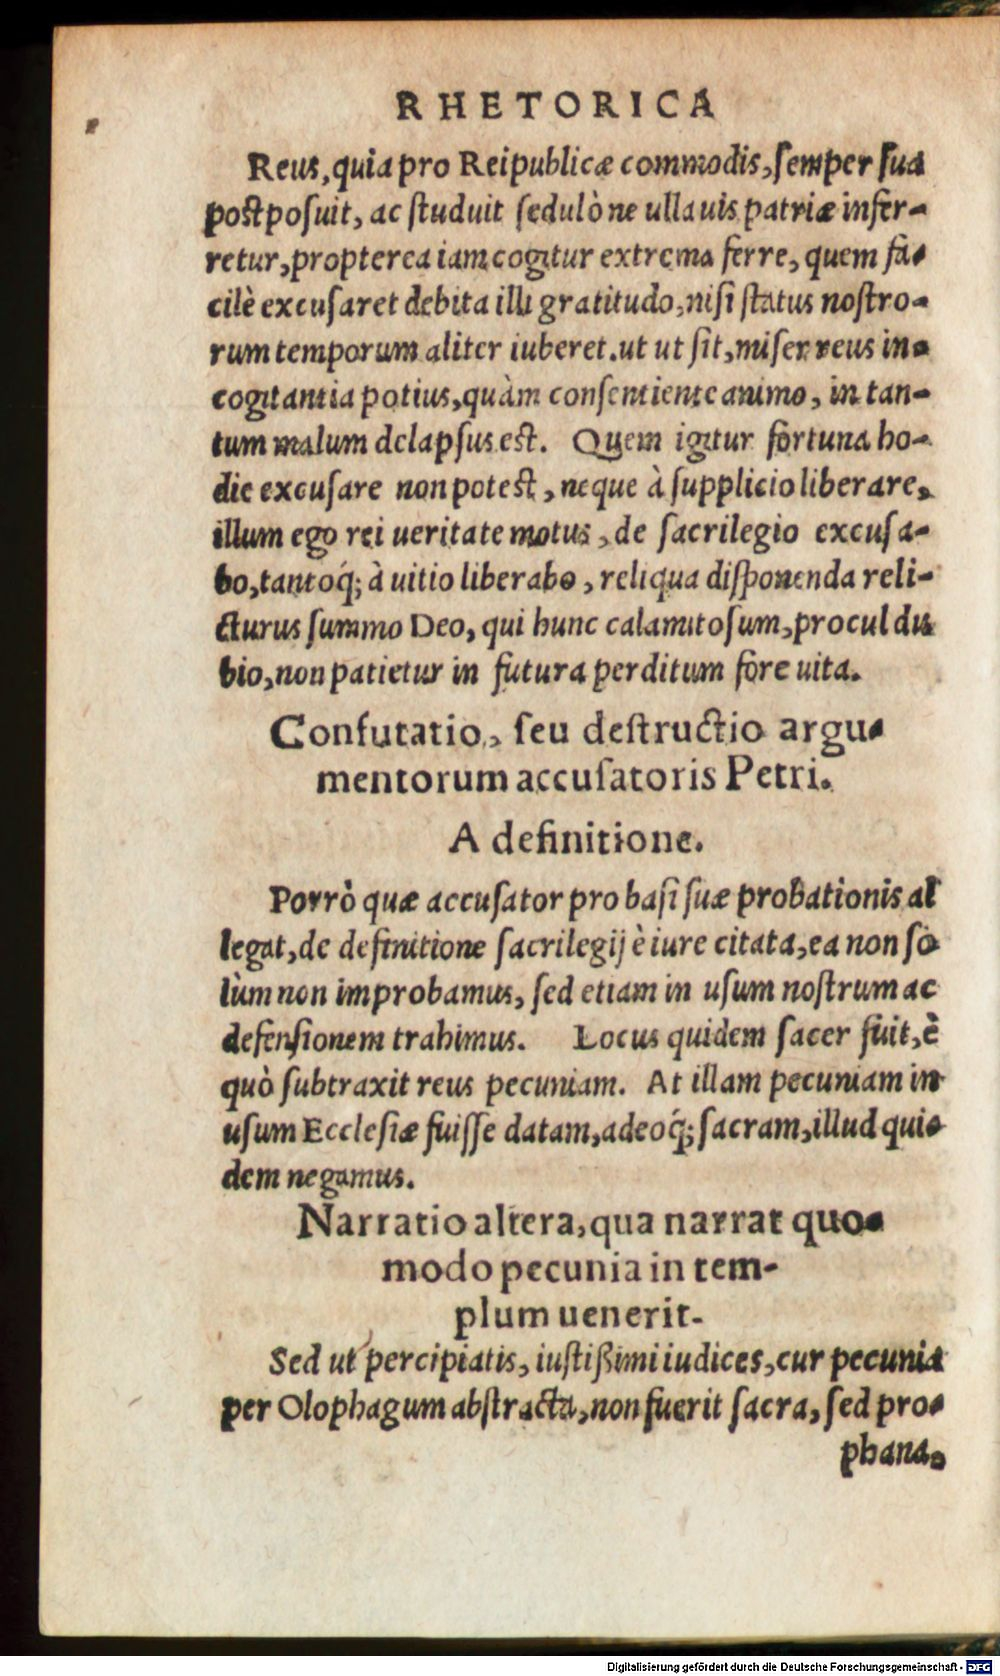 RHETORICA
Reus, quia pro Reipublicæ commodis, semper sua
postposuit, ac studuit sedulò ne ulla uis patriæ infer-
retur, propterea iam cogitur extrema ferre, quem fa-
cilè excusaret debita illi gratitudo, nisi status nostro-
rum temporum aliter iuberet. ut ut sit, miser reus in-
cogitantia potius, quàm consentiente animo, in tan-
tum malum delapsus est. Quem igitur fortuna ho-
die excusare non potest, neque à supplicio liberare,
illum ego rei ueritate motus, de sacrilegio excusa-
bo, tantoq́; à uitio liberabo, reliqua disponenda reli-
cturus summo Deo, qui hunc calamitosum, procul du
bio, non patietur in futura perditum fore uita.
Confutatio, seu destructio argu-
mentorum accusatoris Petri.
A definitione.
Porrò quæ accusator pro basi suæ probationis al
legat, de definitione sacrilegij è iure citata, ea non so
lùm non improbamus, sed etiam in usum nostrum ac
defensionem trahimus. Locus quidem sacer fuit, è
quò subtraxit reus pecuniam. At illam pecuniam in
usum Ecclesiæ fuisse datam, adeoq́; sacram, illud qui-
dem negamus.
Narratio altera, qua narrat quo-
modo pecunia in tem-
plum uenerit.
Sed ut percipiatis, iustißimi iudices, cur pecunia
per Olophagum abstracta, non fuerit sacra, sed pro-
phana.
Digitalisierung gefördert durch die Deutsche Forschungsgemeinschaft - DFG